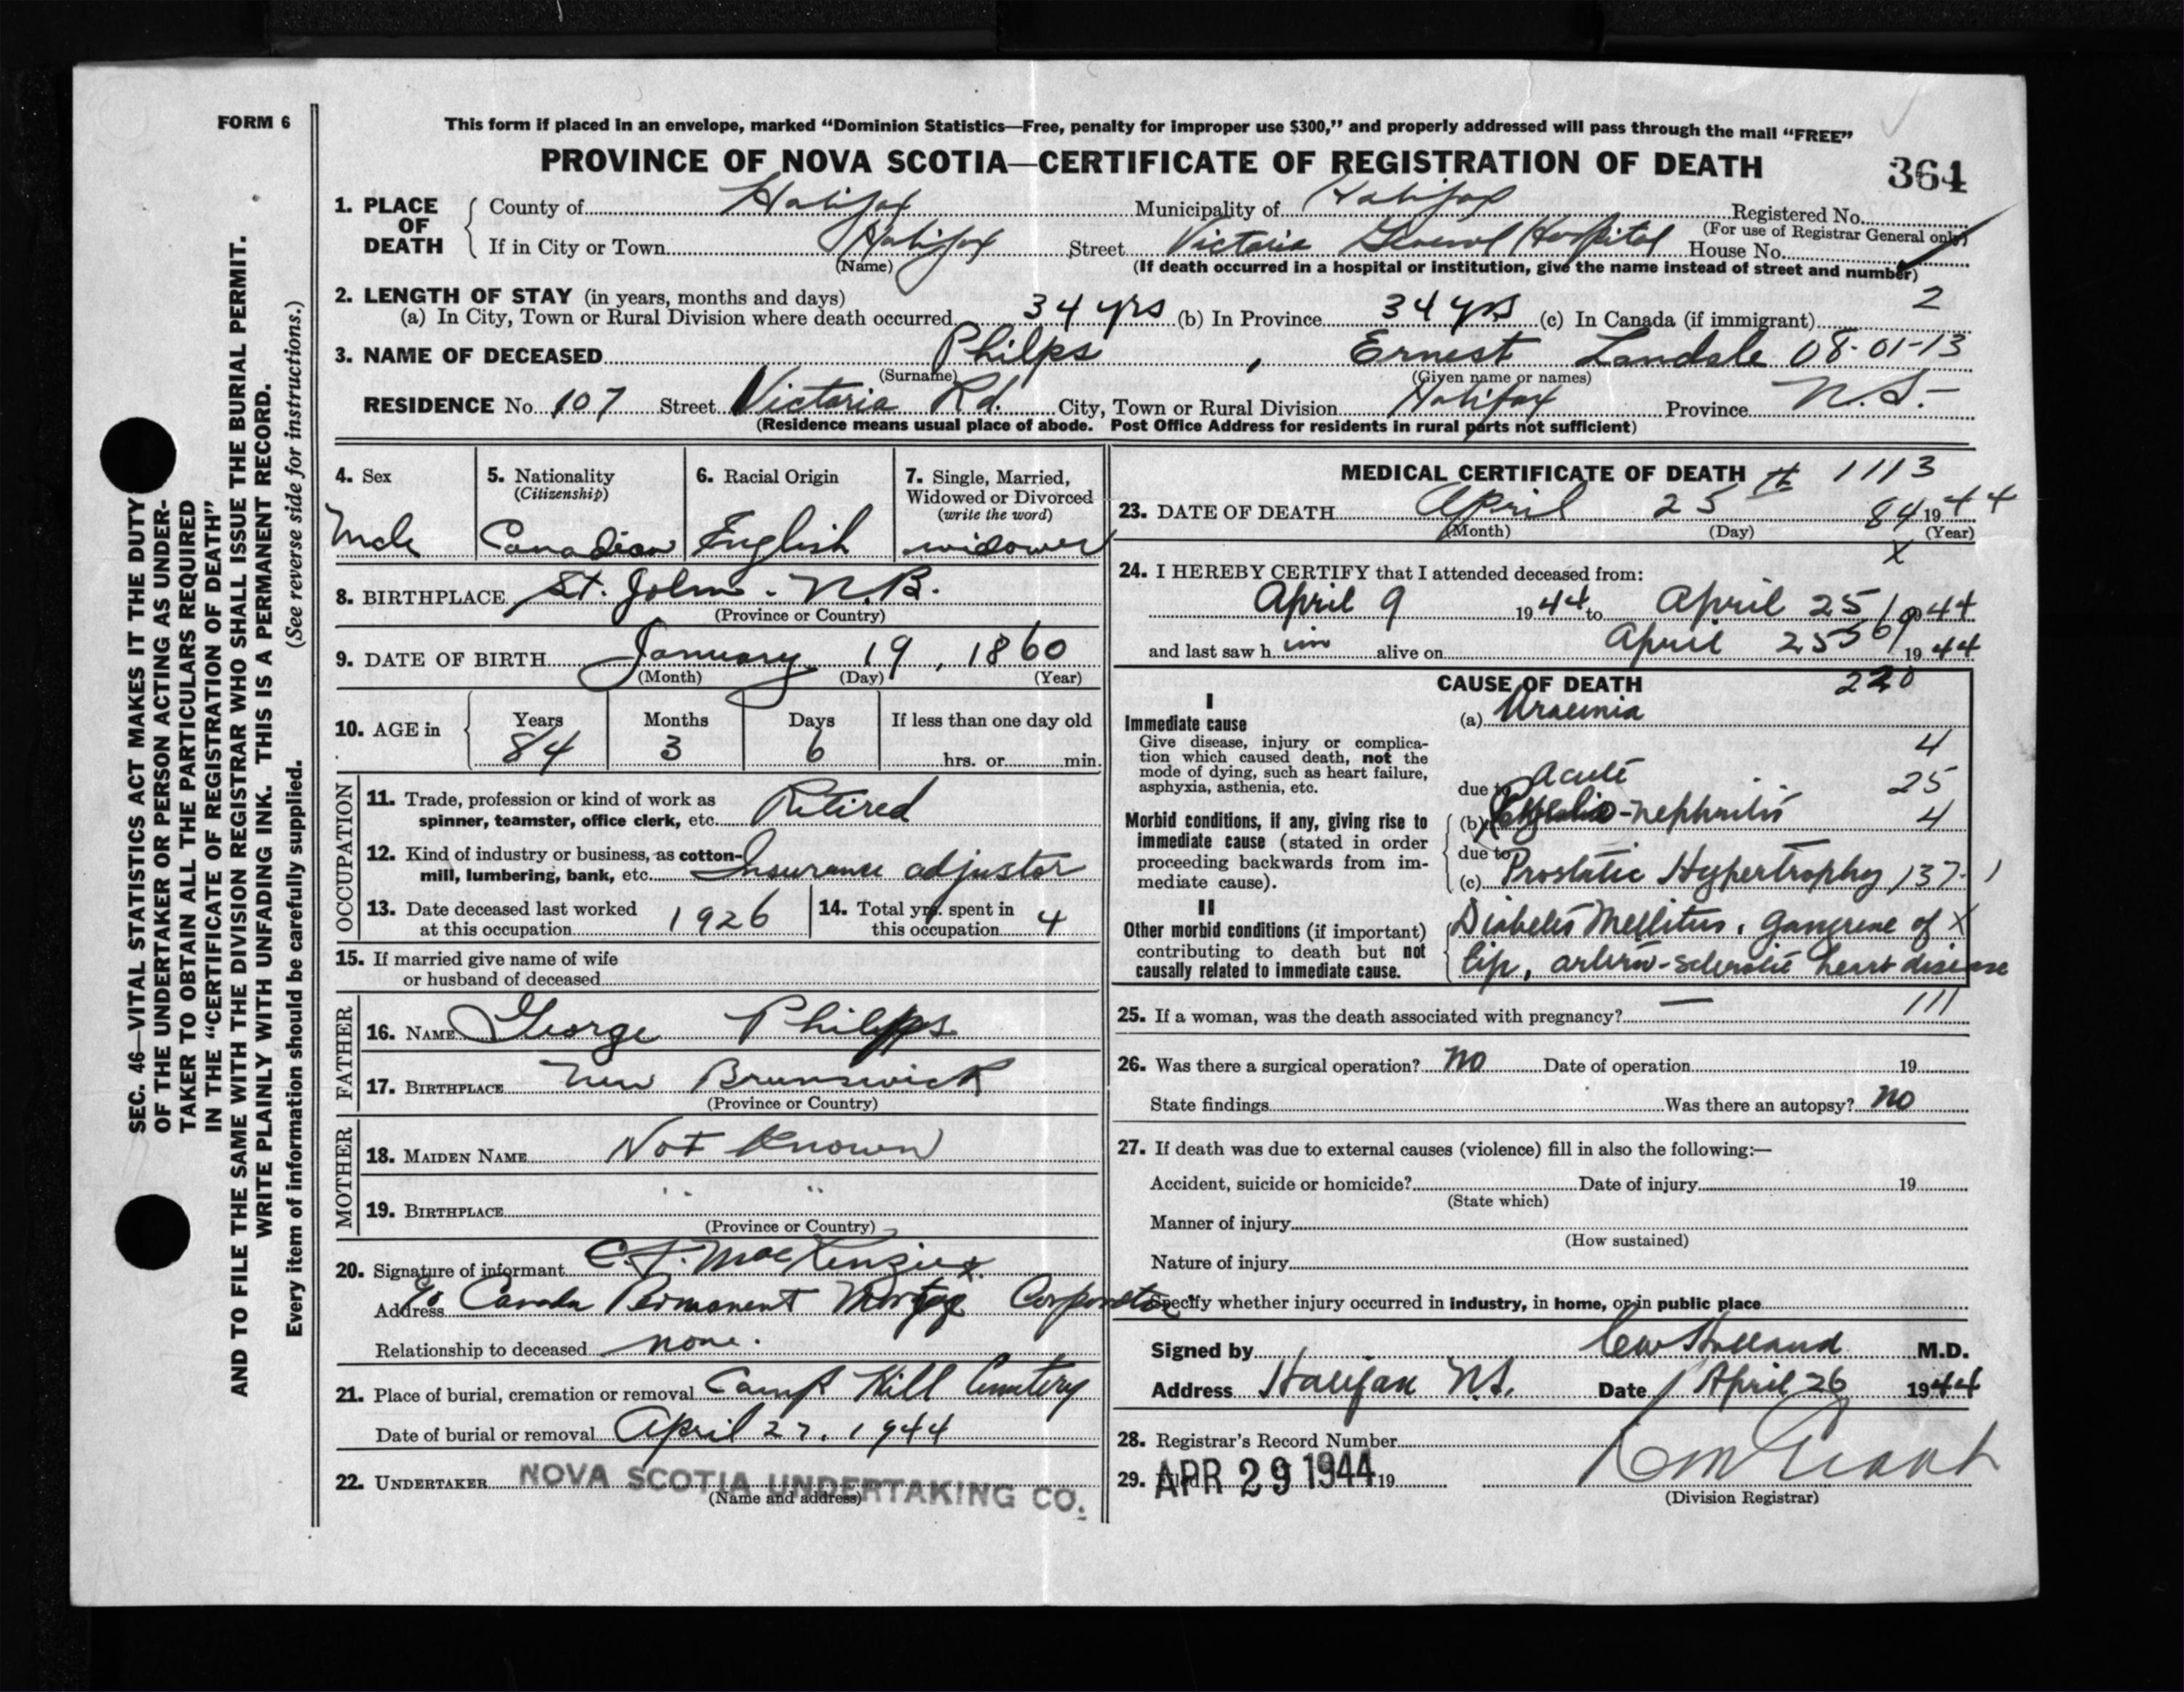 FORM 6
This form if placed in an envelope, marked “Dominion Statistics—Free, penalty for improper use $300,” and properly addressed will pass through the mail “FREE”
PROVINCE OF NOVA SCOTIA—CERTIFICATE OF REGISTRATION OF DEATH
364
1. PLACE OF DEATH
County of Halifax Municipality of Halifax Registered No.
(For use of Registrar General only)
If in City or Town Halifax Street Victoria General Hospital House No.
(Name) (If death occurred in a hospital or institution, give the name instead of street and number)
2. LENGTH OF STAY (in years, months and days) 2
(a) In City, Town or Rural Division where death occurred 34 yrs (b) In Province 34 yrs (c) In Canada (if immigrant)
3. NAME OF DECEASED Philps, Ernest 08-01-13
(Surname) (Given name or names)
RESIDENCE No. 107 Street Victoria Rd. City, Town or Rural Division Halifax Province N.S.
(Residence means usual place of abode. Post Office Address for residents in rural parts not sufficient)
4. Sex
Male
5. Nationality
(Citizenship)
Canadian
6. Racial Origin
English
7. Single, Married,
Widowed or Divorced
(write the word)
widower
8. BIRTHPLACE St. John - N.B.
(Province or Country)
9. DATE OF BIRTH January 19, 1860
(Month) (Day) (Year)
10. AGE in
Years Months Days If less than one day old
84 3 6 hrs. or min.
OCCUPATION
11. Trade, profession or kind of work as
spinner, teamster, office clerk, etc. Retired
12. Kind of industry or business, as cotton-
mill, lumbering, bank, etc. Insurance adjustor
13. Date deceased last worked
at this occupation 1926
14. Total yrs. spent in
this occupation 4
15. If married give name of wife
or husband of deceased
FATHER
16. NAME George Philps
17. BIRTHPLACE New Brunswick
(Province or Country)
MOTHER
18. MAIDEN NAME Not Known
19. BIRTHPLACE " "
(Province or Country)
20. Signature of informant MacKenzie
Address c/o Canada Permanent Mortge Corporation
Relationship to deceased none.
21. Place of burial, cremation or removal Camp Hill Cemetery
Date of burial or removal April 27, 1944
22. UNDERTAKER NOVA SCOTIA UNDERTAKING CO.
(Name and address)
MEDICAL CERTIFICATE OF DEATH # 1113
23. DATE OF DEATH April 25 84 1944
(Month) (Day) (Year)
X
24. I HEREBY CERTIFY that I attended deceased from:
April 9 1944 to April 25 1944
and last saw him alive on April 25 1944
CAUSE OF DEATH 220
I
Immediate cause
Give disease, injury or complica-
tion which caused death, not the
mode of dying, such as heart failure,
asphyxia, asthenia, etc.
(a) Uraemia
4
due to Acute 25
Morbid conditions, if any, giving rise to
immediate cause (stated in order
proceeding backwards from im-
mediate cause).
(b) -nephritis 4
due to
(c) Prostatic Hypertrophy 137-1
II
Other morbid conditions (if important)
contributing to death but not
causally related to immediate cause.
Diabetes Mellitus, gangrene of X
lip, arterio-sclerotic heart disease
111
25. If a woman, was the death associated with pregnancy? —
26. Was there a surgical operation? No Date of operation 19
State findings Was there an autopsy? No
27. If death was due to external causes (violence) fill in also the following:—
Accident, suicide or homicide? Date of injury 19
(State which)
Manner of injury
(How sustained)
Nature of injury
Specify whether injury occurred in industry, in home, or in public place
Signed by CW Holland M.D.
Address Halifax N.S. Date April 26 1944
28. Registrar's Record Number
29. APR 29 1944 19
(Division Registrar)
SEC. 46—VITAL STATISTICS ACT MAKES IT THE DUTY
OF THE UNDERTAKER OR PERSON ACTING AS UNDER-
TAKER TO OBTAIN ALL THE PARTICULARS REQUIRED
IN THE “CERTIFICATE OF REGISTRATION OF DEATH”
AND TO FILE THE SAME WITH THE DIVISION REGISTRAR WHO SHALL ISSUE THE BURIAL PERMIT.
WRITE PLAINLY WITH UNFADING INK. THIS IS A PERMANENT RECORD.
Every item of information should be carefully supplied. (See reverse side for instructions.)